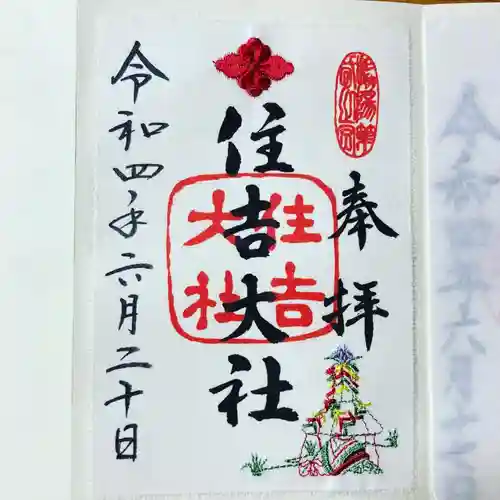 奉拝
住吉大社
住吉
大社
令和四年六月二十日